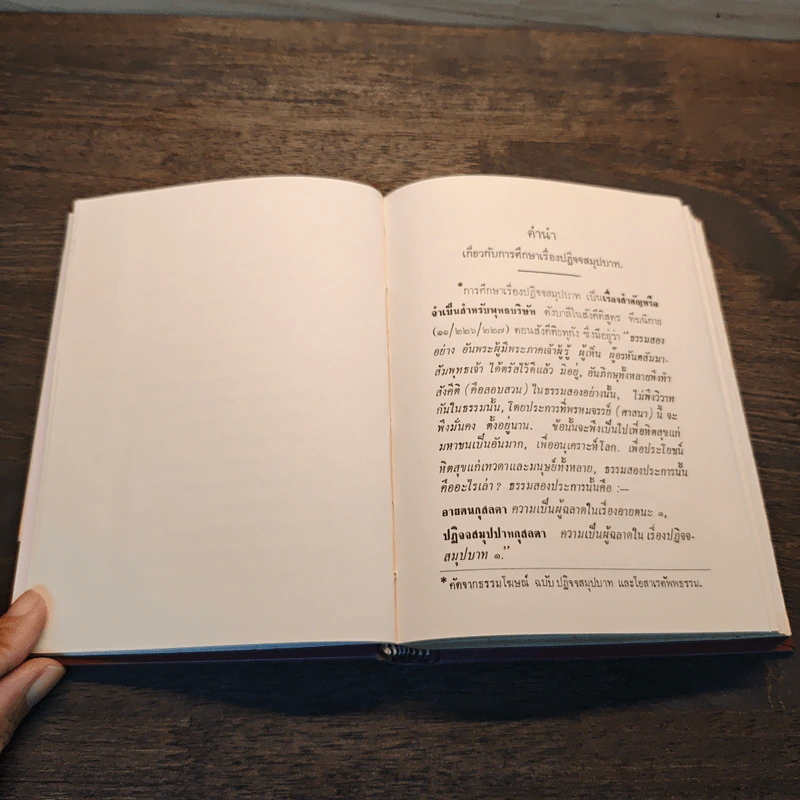 คำนำ
เกี่ยวกับการศึกษาเรื่องปฏิจจสมุปบาท.
*การศึกษาเรื่องปฏิจจสมุปบาท เป็นเรื่องสำคัญหรือ
จำเป็นสำหรับพุทธบริษัท ดังบาลีในสังคีติสูตร ทีฆนิกาย
(๑๑/๒๒๖/๒๒๗) ตอนสังคีติยทุกัง ซึ่งมีอยู่ว่า "ธรรมสอง
อย่าง อันพระผู้มีพระภาคเจ้าผู้รู้ ผู้เห็น ผู้อรหันตสัมมา-
สัมพุทธเจ้า ได้ตรัสไว้ดีแล้ว มีอยู่, อันภิกษุทั้งหลายพึงทำ
สังคีติ (คือสอบสวน) ในธรรมสองอย่างนั้น, ไม่พึงวิวาท
กันในธรรมนั้น, โดยประการที่พรหมจรรย์ (ศาสนา) นี้ จะ
พึงมั่นคง ตั้งอยู่นาน. ข้อนั้นจะพึงเป็นไปเพื่อหิตสุขแก่
มหาชนเป็นอันมาก, เพื่ออนุเคราะห์โลก. เพื่อประโยชน์
หิตสุขแก่เทวดาและมนุษย์ทั้งหลาย, ธรรมสองประการนั้น
คืออะไรเล่า ? ธรรมสองประการนั้นคือ :—
อายตนกุสลตา ความเป็นผู้ฉลาดในเรื่องอายตนะ ๑,
ปฏิจจสมุปปาทกุสลตา ความเป็นผู้ฉลาดใน เรื่องปฏิจจ-
สมุปบาท ๑."
* คัดจากธรรมโฆษณ์ ฉบับ ปฏิจจสมุปบาท และโอสาเรตัพพธรรม.